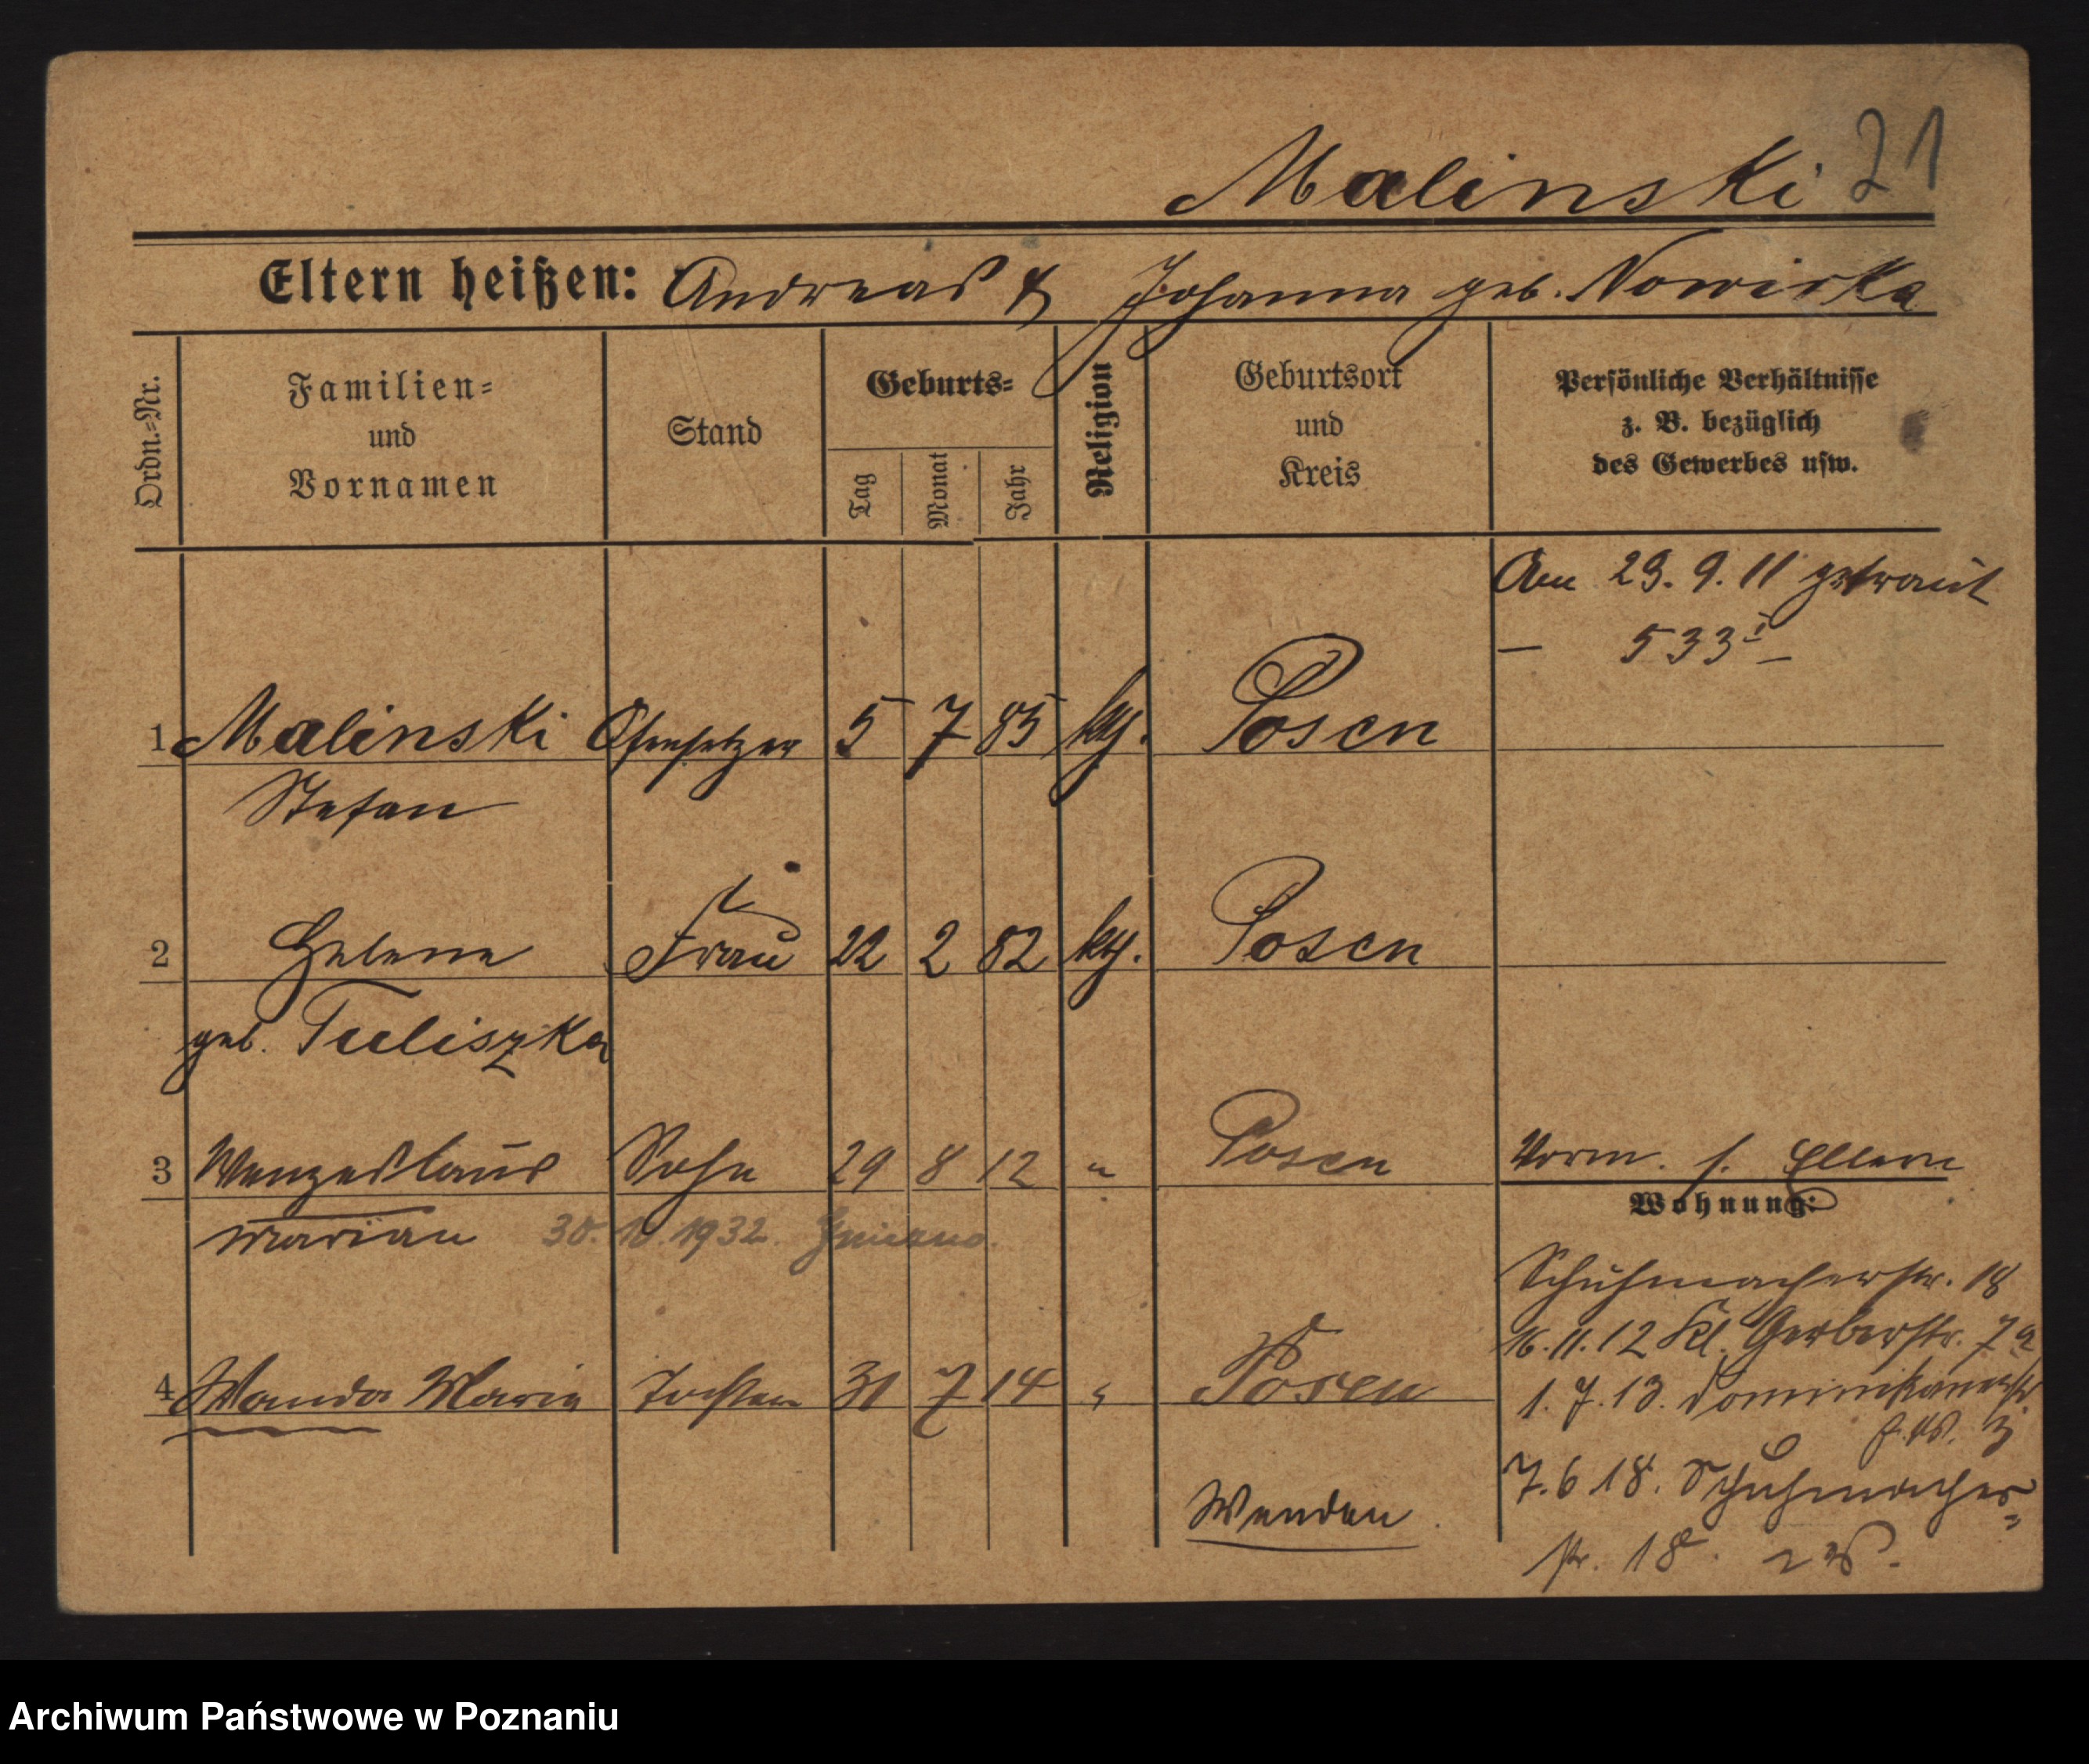 Malinski 21
Eltern heißen: Andreas & Johanna geb. Nowicka
Ordn.-Nr.
Familien-
und
Vornamen
Stand
Geburts-
Tag
Monat
Jahr
Religion
Geburtsort
und
Kreis
Persönliche Verhältnisse
z. B. bezüglich
des Gewerbes usw.
Am 23. 9. 11 getraut
— 533 —
1 Malinski Ofensetzer 5 7 85 kth. Posen
Stefan
2 Helene Frau 22 2 82 kth. Posen
geb. Tuliszka
3 Wenzeslaus Sohn 29 8 12 " Posen Vorm. s. Eltern
Marian 30. 10. 1932 Gniezno.
Wohnung:
Schuhmacherstr. 18
16. 11. 12 Kl. Gerberstr. 7a
4 Wanda Maria Tochter 31 7 14 " Posen
1. 7. 13. Dominikanerstr
3
7. 6 18. Schuhmacher-
Wenden
str. 18.